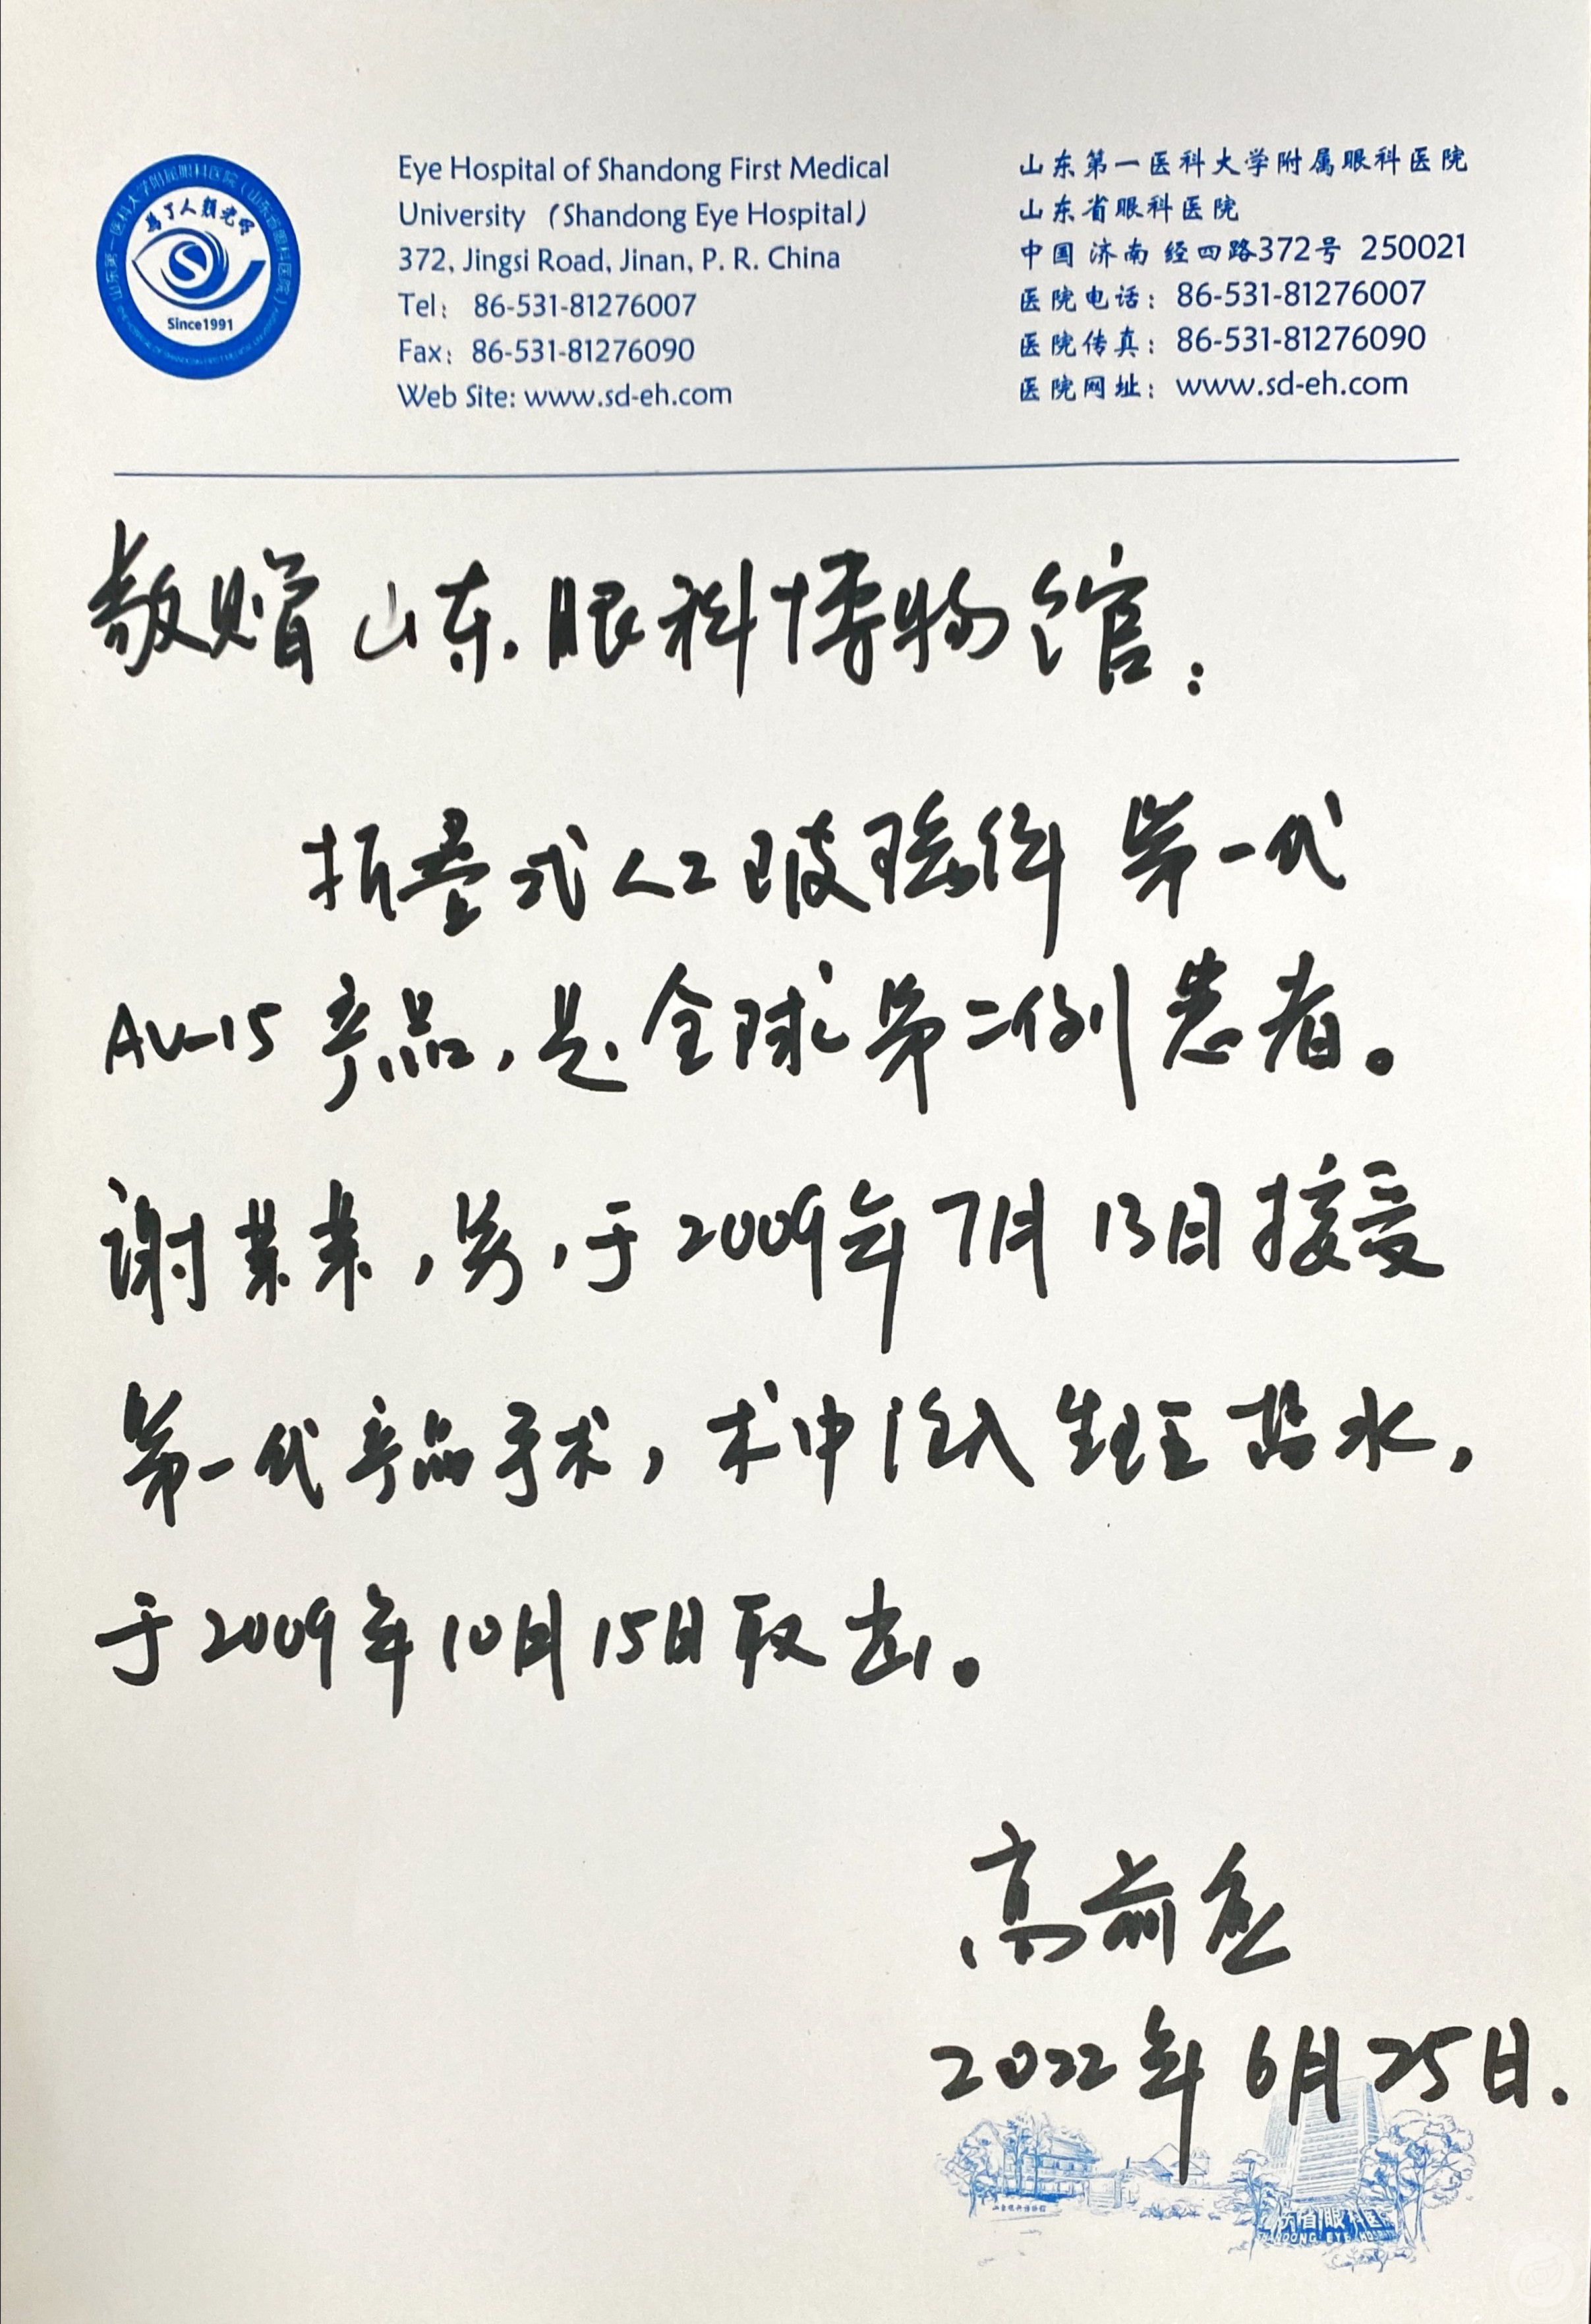 为了人类光明
Since1991
Eye Hospital of Shandong First Medical
University （Shandong Eye Hospital）
372, Jingsi Road, Jinan, P. R. China
Tel： 86-531-81276007
Fax：86-531-81276090
Web Site: www.sd-eh.com
山东第一医科大学附属眼科医院
山东省眼科医院
中国 济南 经四路372号 250021
医院电话：86-531-81276007
医院传真：86-531-81276090
医院网址：www.sd-eh.com
敬赠山东眼科博物馆：
折叠式人工玻璃体 第一代
AV-15 产品，是全球第二例患者。
谢某某，男，于2009年7月13日接受
第一代产品手术，术中注入生理盐水，
于2009年10月15日取出。
高前应
2022年6月25日.
山东眼科博物馆
山东省眼科医
SHANDONG EYE